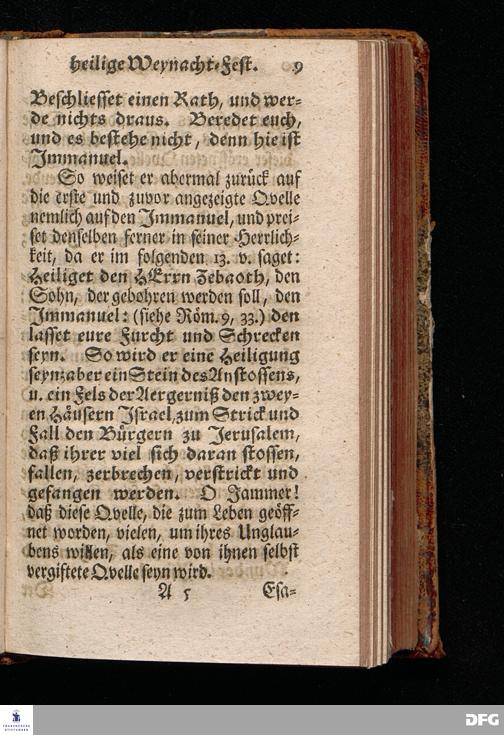 heilige Weynacht-Fest. 9
Beschliesset einen Rath, und wer-
de nichts draus. Beredet euch,
und es bestehe nicht, denn hie ist
Immanuel.
So weiset er abermal zurück auf
die erste und zuvor angezeigte Qvelle
nemlich auf den Immanuel, und prei-
set denselben ferner in seiner Herrlich-
keit, da er im folgenden 13. v. saget:
Heiliget den HErrn Zebaoth, den
Sohn, der gebohren werden soll, den
Immanuel: (siehe Röm. 9, 33.) den
lasset eure Furcht und Schrecken
seyn. So wird er eine Heiligung
seyn: aber ein Stein des Anstossens,
u. ein Fels der Aergerniß den zwey-
en Häusern Israel, zum Strick und
Fall den Bürgern zu Jerusalem,
daß ihrer viel sich daran stossen,
fallen, zerbrechen, verstrickt und
gefangen werden. O Jammer!
daß diese Qvelle, die zum Leben geöff-
net worden, vielen, um ihres Unglau-
bens willen, als eine von ihnen selbst
vergiftete Qvelle seyn wird.
A 5 Esa-
FRANCKESCHE
STIFTUNGEN
DFG